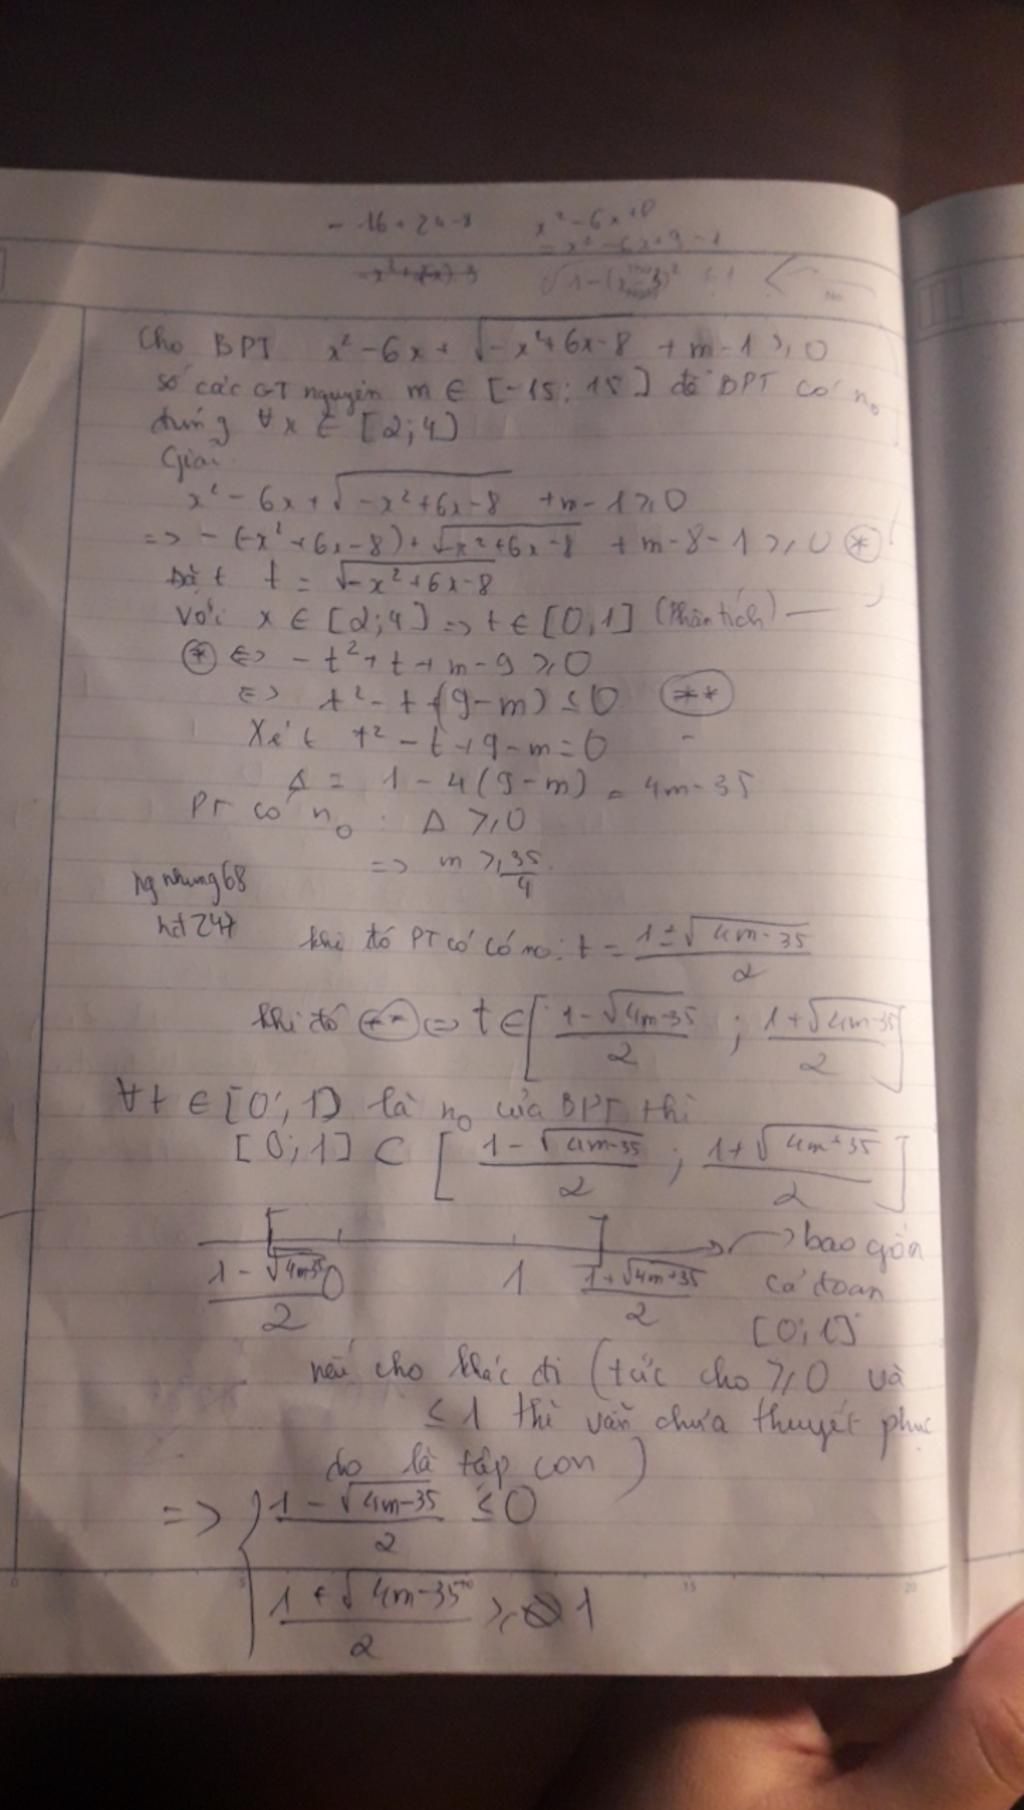 - 16 + 24 - 8
x² - 6x + 8
= x² - 6x + 9 - 1
√1 - (x - 3)² ≤ 1
Cho BPT x² - 6x + √-x²+6x-8 + m - 1 ≥ 0
số các GT nguyên m ∈ [-15; 15] để BPT có n₀
đúng ∀x ∈ [2;4]
Giải
x² - 6x + √-x²+6x-8 + m - 1 ≥ 0
=> - (-x²+6x-8) + √-x²+6x-8 + m - 8 - 1 ≥ 0 (*)
Đặt t = √-x²+6x-8
Với x ∈ [2;4] => t ∈ [0,1] (Phân tích)
(*) <=> -t² + t + m - 9 ≥ 0
<=> t² - t + (9-m) ≤ 0 (**)
Xét t² - t + 9 - m = 0
Δ = 1 - 4(9-m) = 4m - 35
PT có n₀ : Δ ≥ 0
=> m ≥ 35/4
Ng nhung68
hd247
Khi đó PT có có n₀: t = (1 ± √4m-35)/2
khi đó (**) <=> t ∈ [(1-√4m-35)/2 ; (1+√4m-35)/2]
∀t ∈ [0;1] là n₀ của BPT thì
[0;1] ⊂ [(1-√4m-35)/2 ; (1+√4m-35)/2]
(1-√4m-35)/2 0 1 (1+√4m-35)/2 → bao gồm
cả đoạn
[0;1]
nếu cho khác đi (tức cho ≥ 0 và
≤ 1 thì vẫn chưa thuyết phục
do là tập con)
=> { (1-√4m-35)/2 ≤ 0
(1+√4m-35)/2 ≥ 1